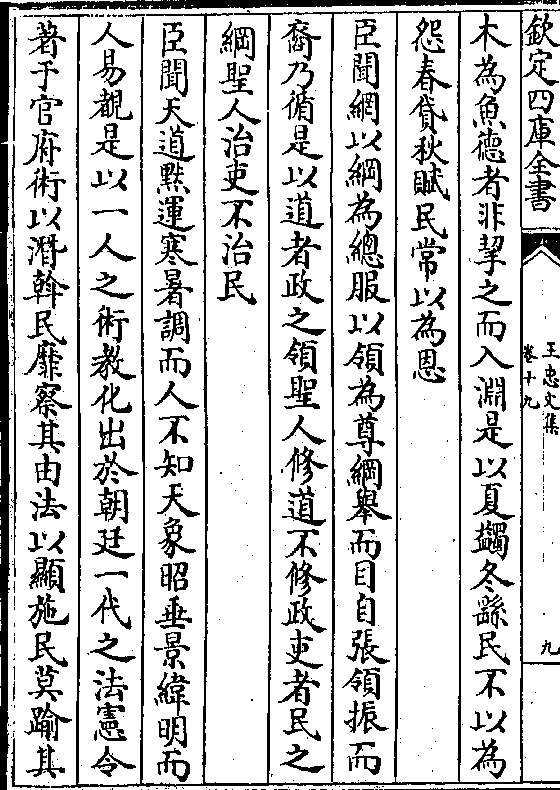 欽定四庫全書
王忠文集
卷十九
九
木為魚德者非挈之而入淵是以夏蠲冬繇民不以為
怨春貸秋賦民常以為恩
臣聞網以綱為總服以領為尊綱舉而目自張領振而
裔乃循是以道者政之領聖人修道不修政吏者民之
綱聖人治吏不治民
臣聞天道黙運寒暑調而人不知天象昭垂景緯明而
人易覩是以一人之術教化出於朝廷一代之法憲令
著于官府術以潛斡民靡察其由法以顯施民莫踰其